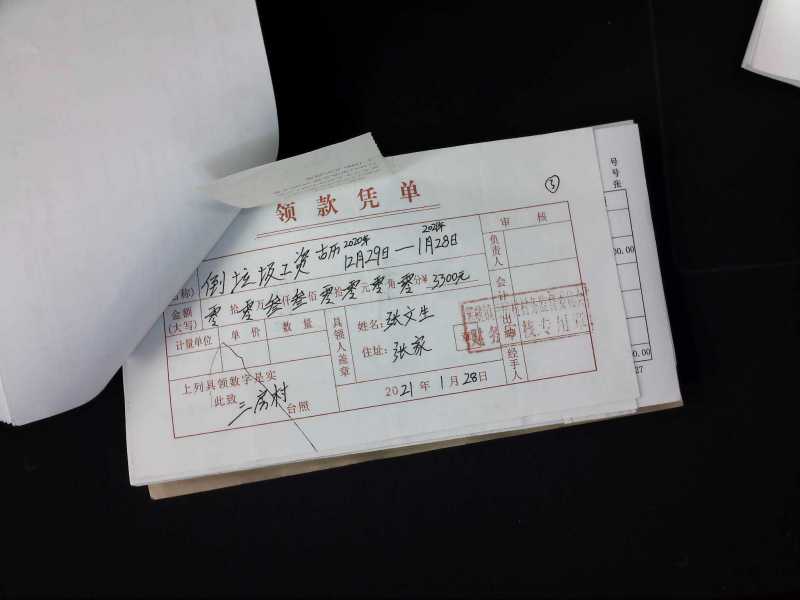 ③
领款凭单
名称) 倒垃圾工资 古历 2020年 12月29日—2021年 1月28日
审核
负责人
金额(大写) 零拾零万叁仟叁佰零拾零元零角零分¥3300元
计量单位 单价 数量
具领人盖章
姓名: 张文生
住址: 张家
会计
出纳
财务 专用章
上列具领数字是实
此致
三房村 台照
2021年1月28日
经手人
号
号
张
00.00
0.00
27